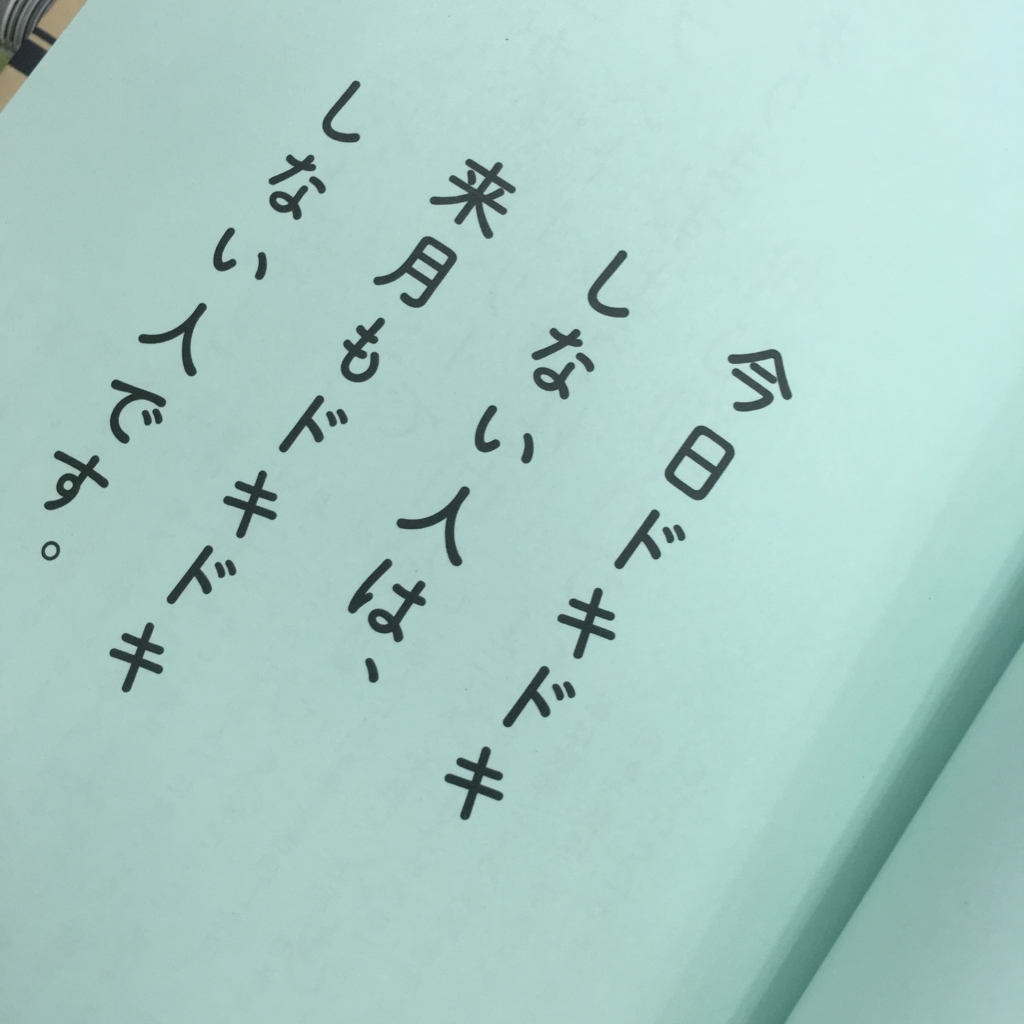 今日ドキドキ
しない人は、
来月もドキドキ
しない人です。